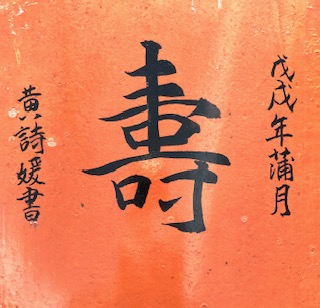 戊戌年蒲月
壽
黄詩媛書